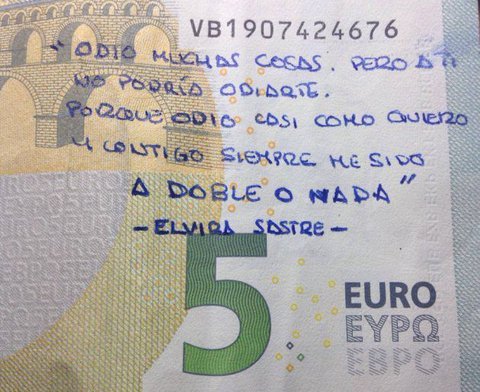 VB1907424676
"ODIO MUCHAS COSAS. PERO A TI
NO PODRÍA ODIARTE.
PORQUE ODIO CASI COMO QUIERO
Y CONTIGO SIEMPRE HE SIDO
A DOBLE O NADA"
- ELVIRA SASTRE -
5
EURO
ΕΥΡΩ
ЕВРО